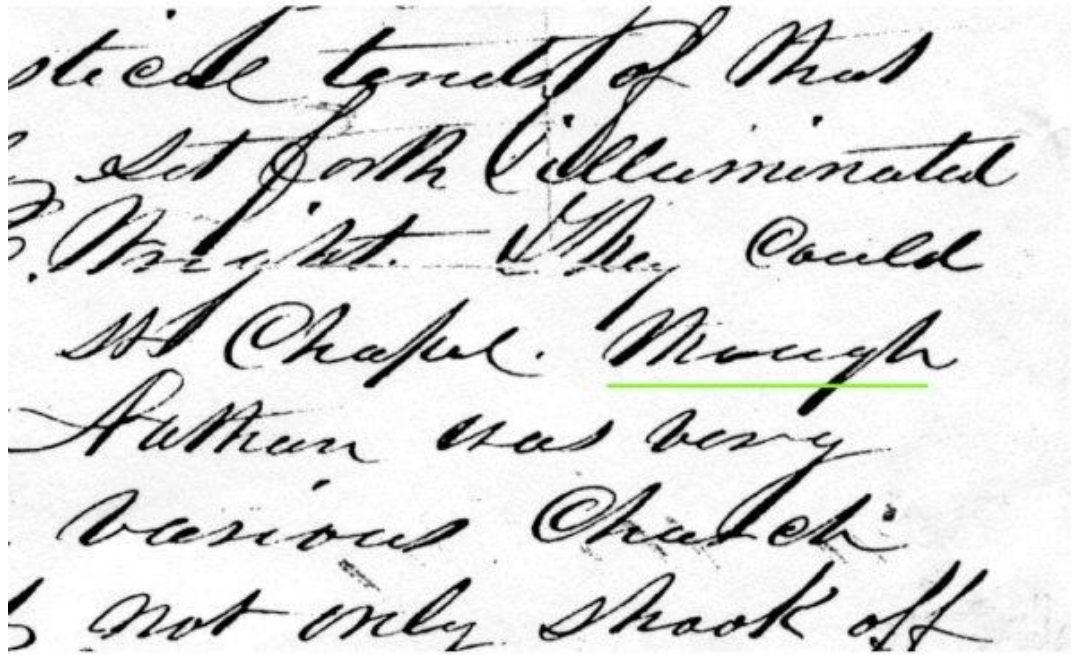 stical tends of that
set forth illuminated
Wright. They could
Chapel. Though
Nathan was very
various Church
not only shook off